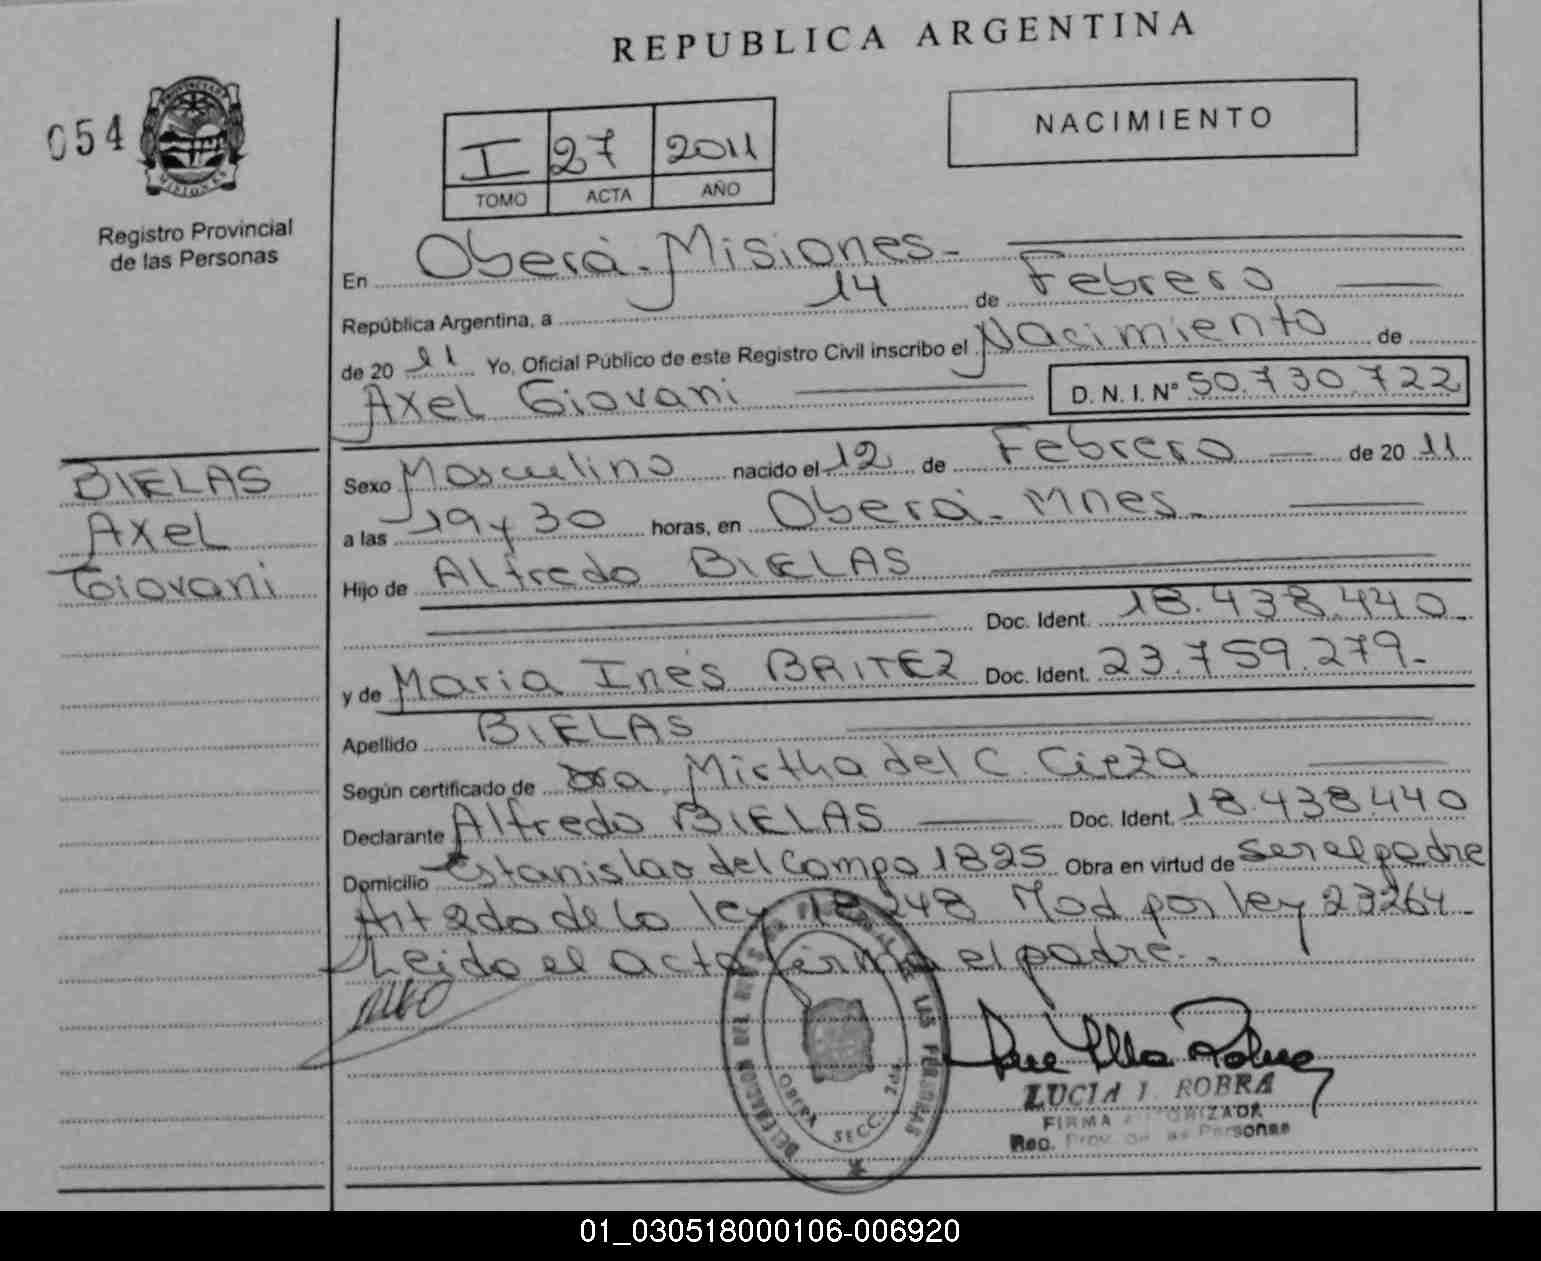 REPUBLICA ARGENTINA
054
PROVINCIA
MISIONES
Registro Provincial
de las Personas
I 27 2011
TOMO ACTA AÑO
NACIMIENTO
En Oberá - Misiones -
República Argentina, a 14 de Febrero
de 20 11 Yo, Oficial Público de este Registro Civil inscribo el Nacimiento de
Axel Giovani D. N. I. N° 50.730.722
BIELAS
Axel
Giovani
Sexo Masculino nacido el 12 de Febrero de 20 11
a las 19 y 30 horas, en Oberá - Mnes -
Hijo de Alfredo BIELAS
Doc. Ident. 18.438.440 -
y de Maria Inés BRITEZ Doc. Ident. 23.759.279 -
Apellido BIELAS
Según certificado de Dra. Mirtha del C. Cieza
Declarante Alfredo BIELAS Doc. Ident. 18.438.440
Domicilio Estanislao del Campo 1825 Obra en virtud de ser el padre
Art 2do de la ley 18248 Mod por ley 23264 -
Leida el acta firma el padre -
OBERA SECC. 2da
LUCIA I. ROBRA
FIRMA AUTORIZADA
Reg. Prov. de las Personas
01_030518000106-006920